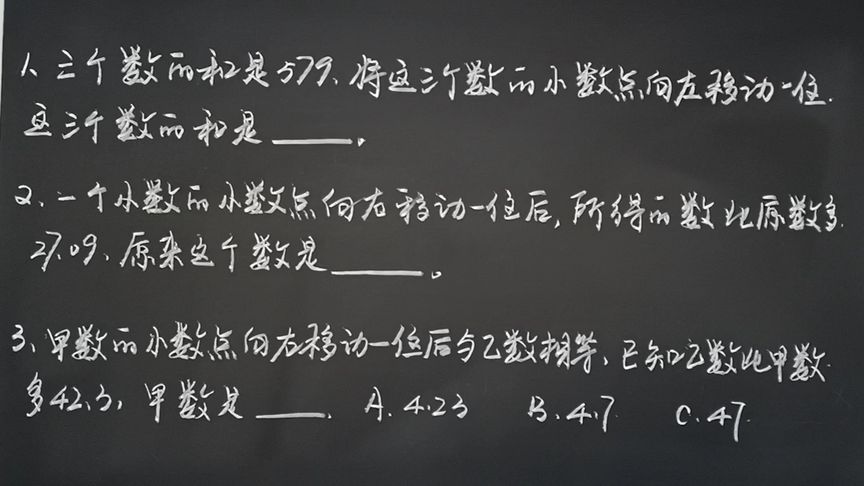 1、三个数的和是579、将这三个数的小数点向左移动一位.
这三个数的和是______。
2、一个小数的小数点向右移动一位后,所得的数比原数多
27.09、原来这个数是______。
3、甲数的小数点向右移动一位后与乙数相等、已知乙数比甲数
多42.3,甲数是______. A. 4.23 B. 4.7 C. 47